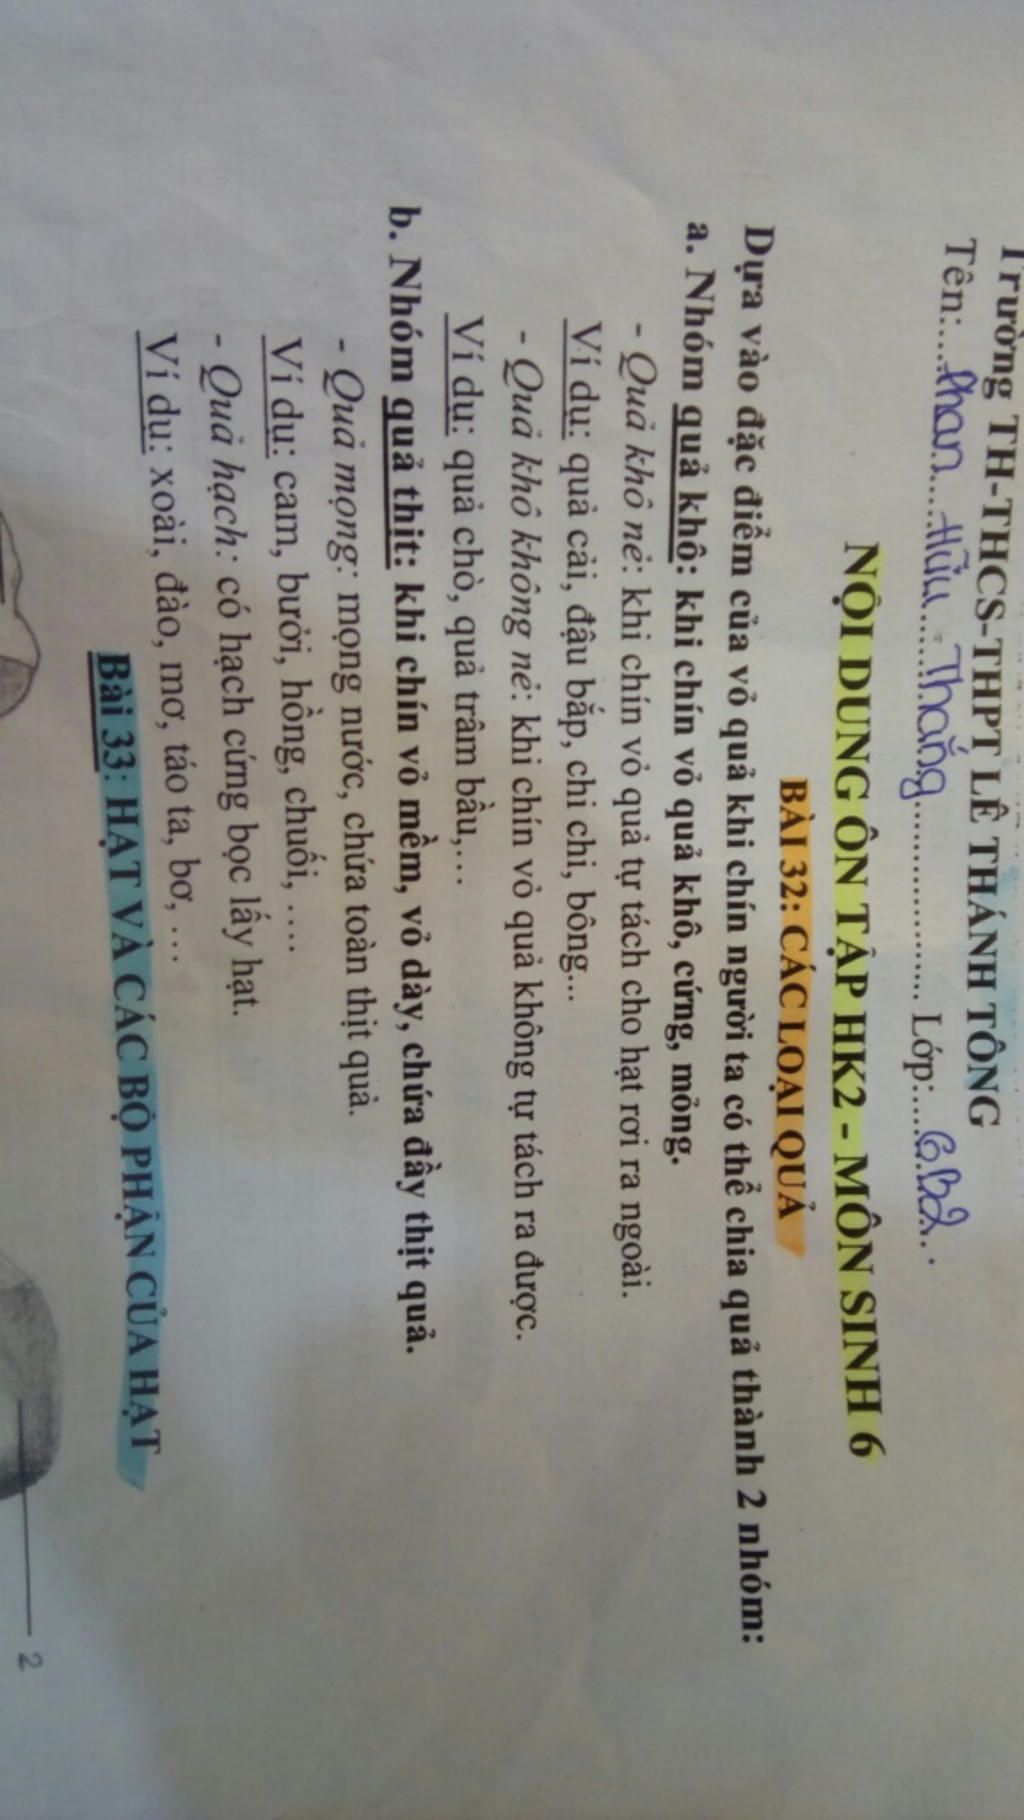 Trường TH-THCS-THPT LÊ THÁNH TÔNG
Tên:.....Phan.....Hữu.....Thắng.................. Lớp:.....6B2..
NỘI DUNG ÔN TẬP HK2 - MÔN SINH 6
BÀI 32: CÁC LOẠI QUẢ
Dựa vào đặc điểm của vỏ quả khi chín người ta có thể chia quả thành 2 nhóm:
a. Nhóm quả khô: khi chín vỏ quả khô, cứng, mỏng.
- Quả khô nẻ: khi chín vỏ quả tự tách cho hạt rơi ra ngoài.
Ví dụ: quả cải, đậu bắp, chi chi, bông...
- Quả khô không nẻ: khi chín vỏ quả không tự tách ra được.
Ví dụ: quả chò, quả trâm bầu,...
b. Nhóm quả thịt: khi chín vỏ mềm, vỏ dày, chứa đầy thịt quả.
- Quả mọng: mọng nước, chứa toàn thịt quả.
Ví dụ: cam, bưởi, hồng, chuối, ....
- Quả hạch: có hạch cứng bọc lấy hạt.
Ví dụ: xoài, đào, mơ, táo ta, bơ, ...
Bài 33: HẠT VÀ CÁC BỘ PHẬN CỦA HẠT
2